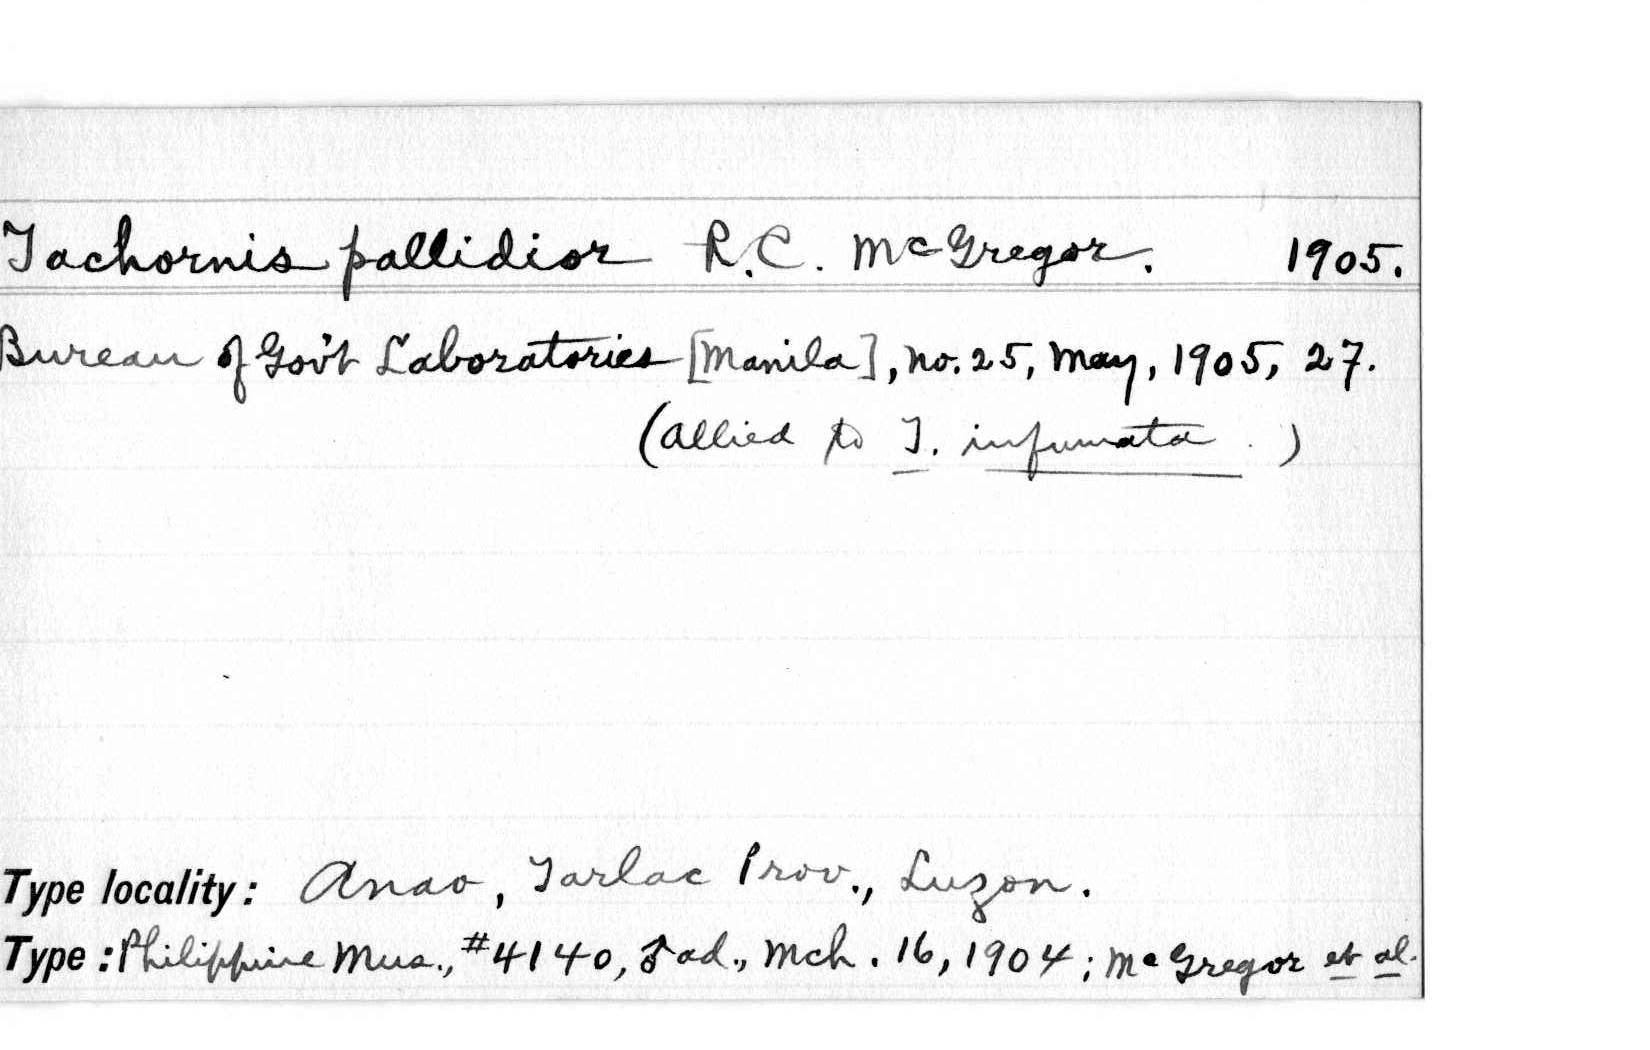 Tachornis pallidior R.C. McGregor. 1905.
Bureau of Gov't Laboratories [Manila], no. 25, May, 1905, 27.
(allied to T. infumata.)
Type locality: Anao, Tarlac Prov., Luzon.
Type: Philippine Mus., #4140, ♂ ad., Mch. 16, 1904; McGregor et al.